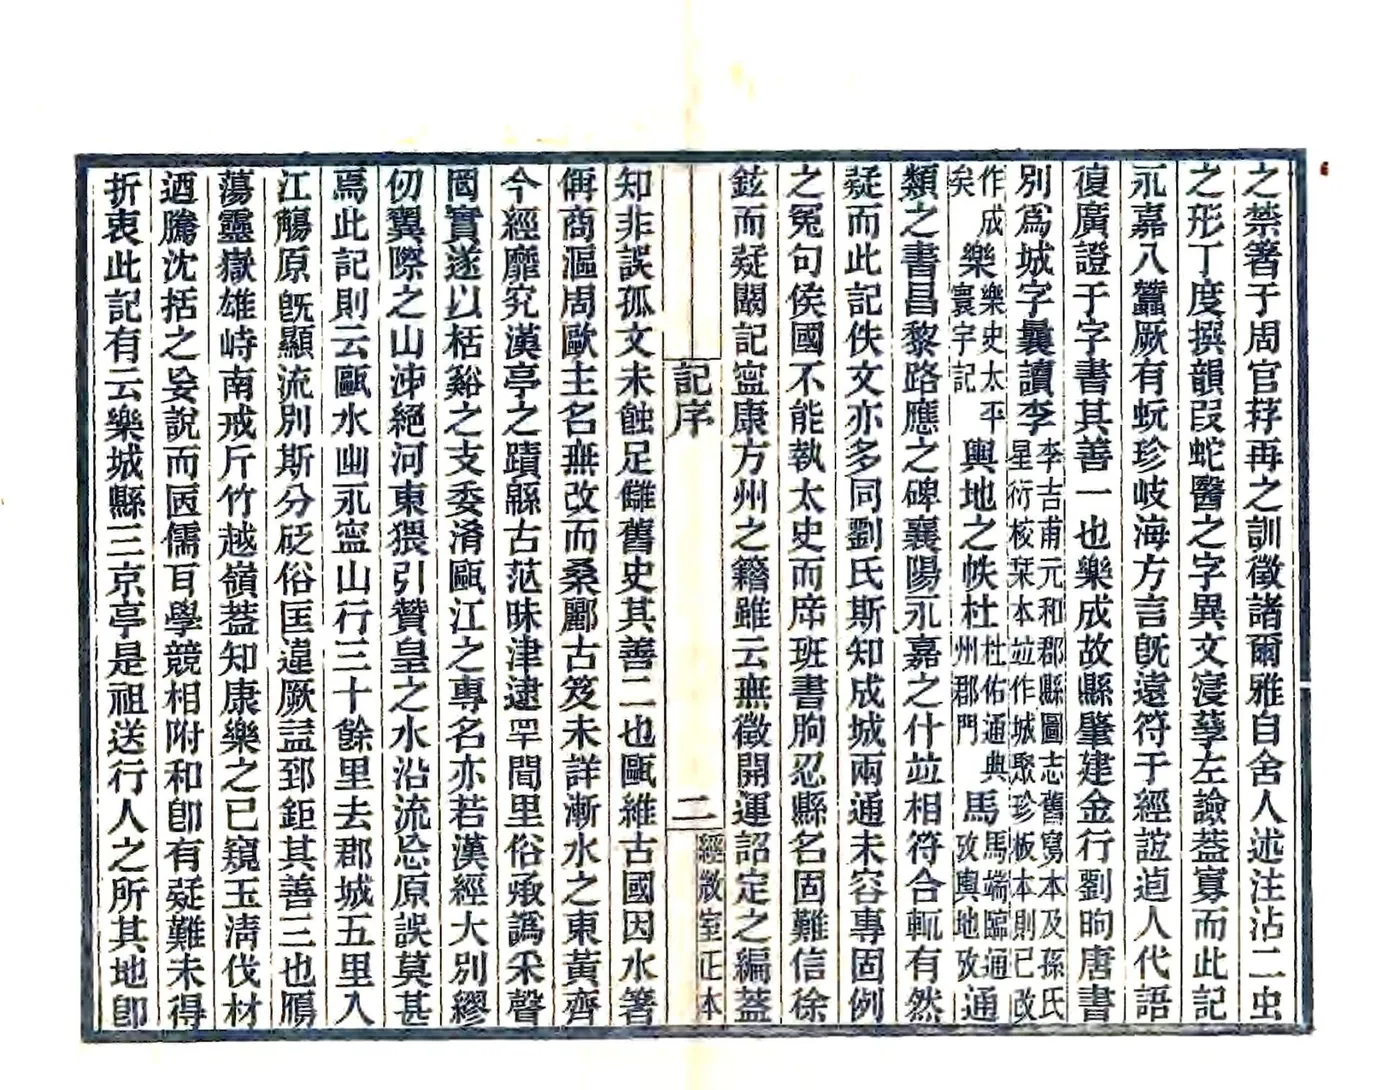 之禁箸于周官荐再之訓徵諸爾雅自舍人述注沾二虫
之形丁度撰韻叚蛇醫之字異文寖孳左譣蓋寡而此記
永嘉八蠶厥有蚖珍岐海方言旣遠符于經誼逌人代語
復廣證于字書其善一也樂成故縣肇建金行劉昫唐書
別爲城字曩讀李李吉甫元和郡縣圖志舊寫本及孫氏星衍校栞本竝作城聚珍板本則已改
作成矣樂樂史太平寰宇記輿地之帙杜杜佑通典州郡門馬馬端臨通攷輿地攷通
類之書昌黎路應之碑襄陽永嘉之什竝相符合輒有然
疑而此記佚文亦多同劉氏斯知成城兩通未容專固例
之冤句矦國不能執太史而席班書朐忍縣名固難信徐
鉉而疑闞記寍康方州之籍雖云無徵開運詔定之編蓋
記序
二
經㣲室正本
知非誤孤文未蝕足讎舊史其善二也甌維古國因水箸
偁商漚周歐主名無改而桑酈古笈未詳漸水之東黃齊
今經靡究漢亭之蹟緜古范昧津逮罕聞里俗承譌釆聲
罔實遂以栝谿之支委淆甌江之專名亦若漢經大別繆
仞翼際之山沛絕河東猥引贊皇之水沿流忘原誤莫甚
焉此記則云甌水出永寍山行三十餘里去郡城五里入
江觴原旣顯流別斯分砭俗匡違厥諡郅鉅其善三也鴈
蕩靈嶽雄峙南戒斤竹越嶺蓋知康樂之已窺玉淸伐材
迺騰沈括之妄說而匧儒目學競相附和卽有疑難未得
折衷此記有云樂城縣三京亭是祖送行人之所其地卽